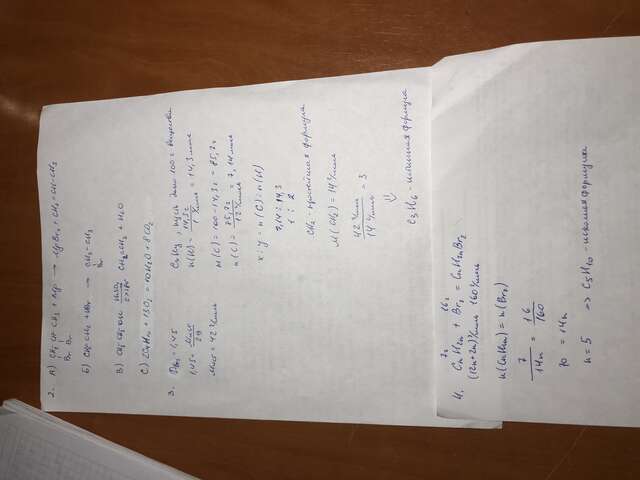 2. А) CH₂-CH-CH₃ + Mg → MgBr₂ + CH₂=CH-CH₃
Br Br
Б) CH₂=CH₂ + HBr → CH₂-CH₃
Br
В) CH₃CH₂OH H₂SO₄ CH₂=CH₂ + H₂O
С) 2C₄H₁₀ + 13O₂ = 10H₂O + 8CO₂
3. = 1,45
1,45 =
29
= 42 г/моль
CxHy, пусть дано 100 г вещества
n(H) = 14,3г / 1 г/моль = 14,3 моль
m(C) = 100 - 14,3г = 85,7г
n(C) = / 12 г/моль = 7,14 моль
x : y = n(C) : n(H)
7,14 : 14,3
1 : 2
CH₂ - простейшая формула
M(CH₂) = 14 г/моль
42 г/моль / 14 г/моль = 3
⇓
C₃H₆ - истинная формула
7г 16г
4. CnH2n + Br₂ = CnH2nBr₂
(12n+2n) г/моль 160 г/моль
n(CnH2n) = n(Br₂)
7 / 14n = 16 / 160
70 = 14n
n = 5 => C₅H₁₀ - искомая формула